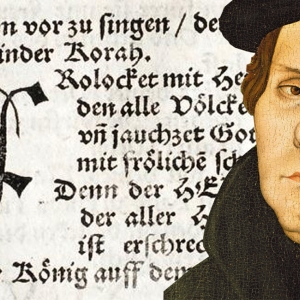 n vor zu ſingen / de
inder Korah.
Rolocket mit He
den alle Völcke
vñ jauchzet Go
mit frölichẽ ſch
Denn der HE
der aller H
iſt erſchrec
r König auff dem